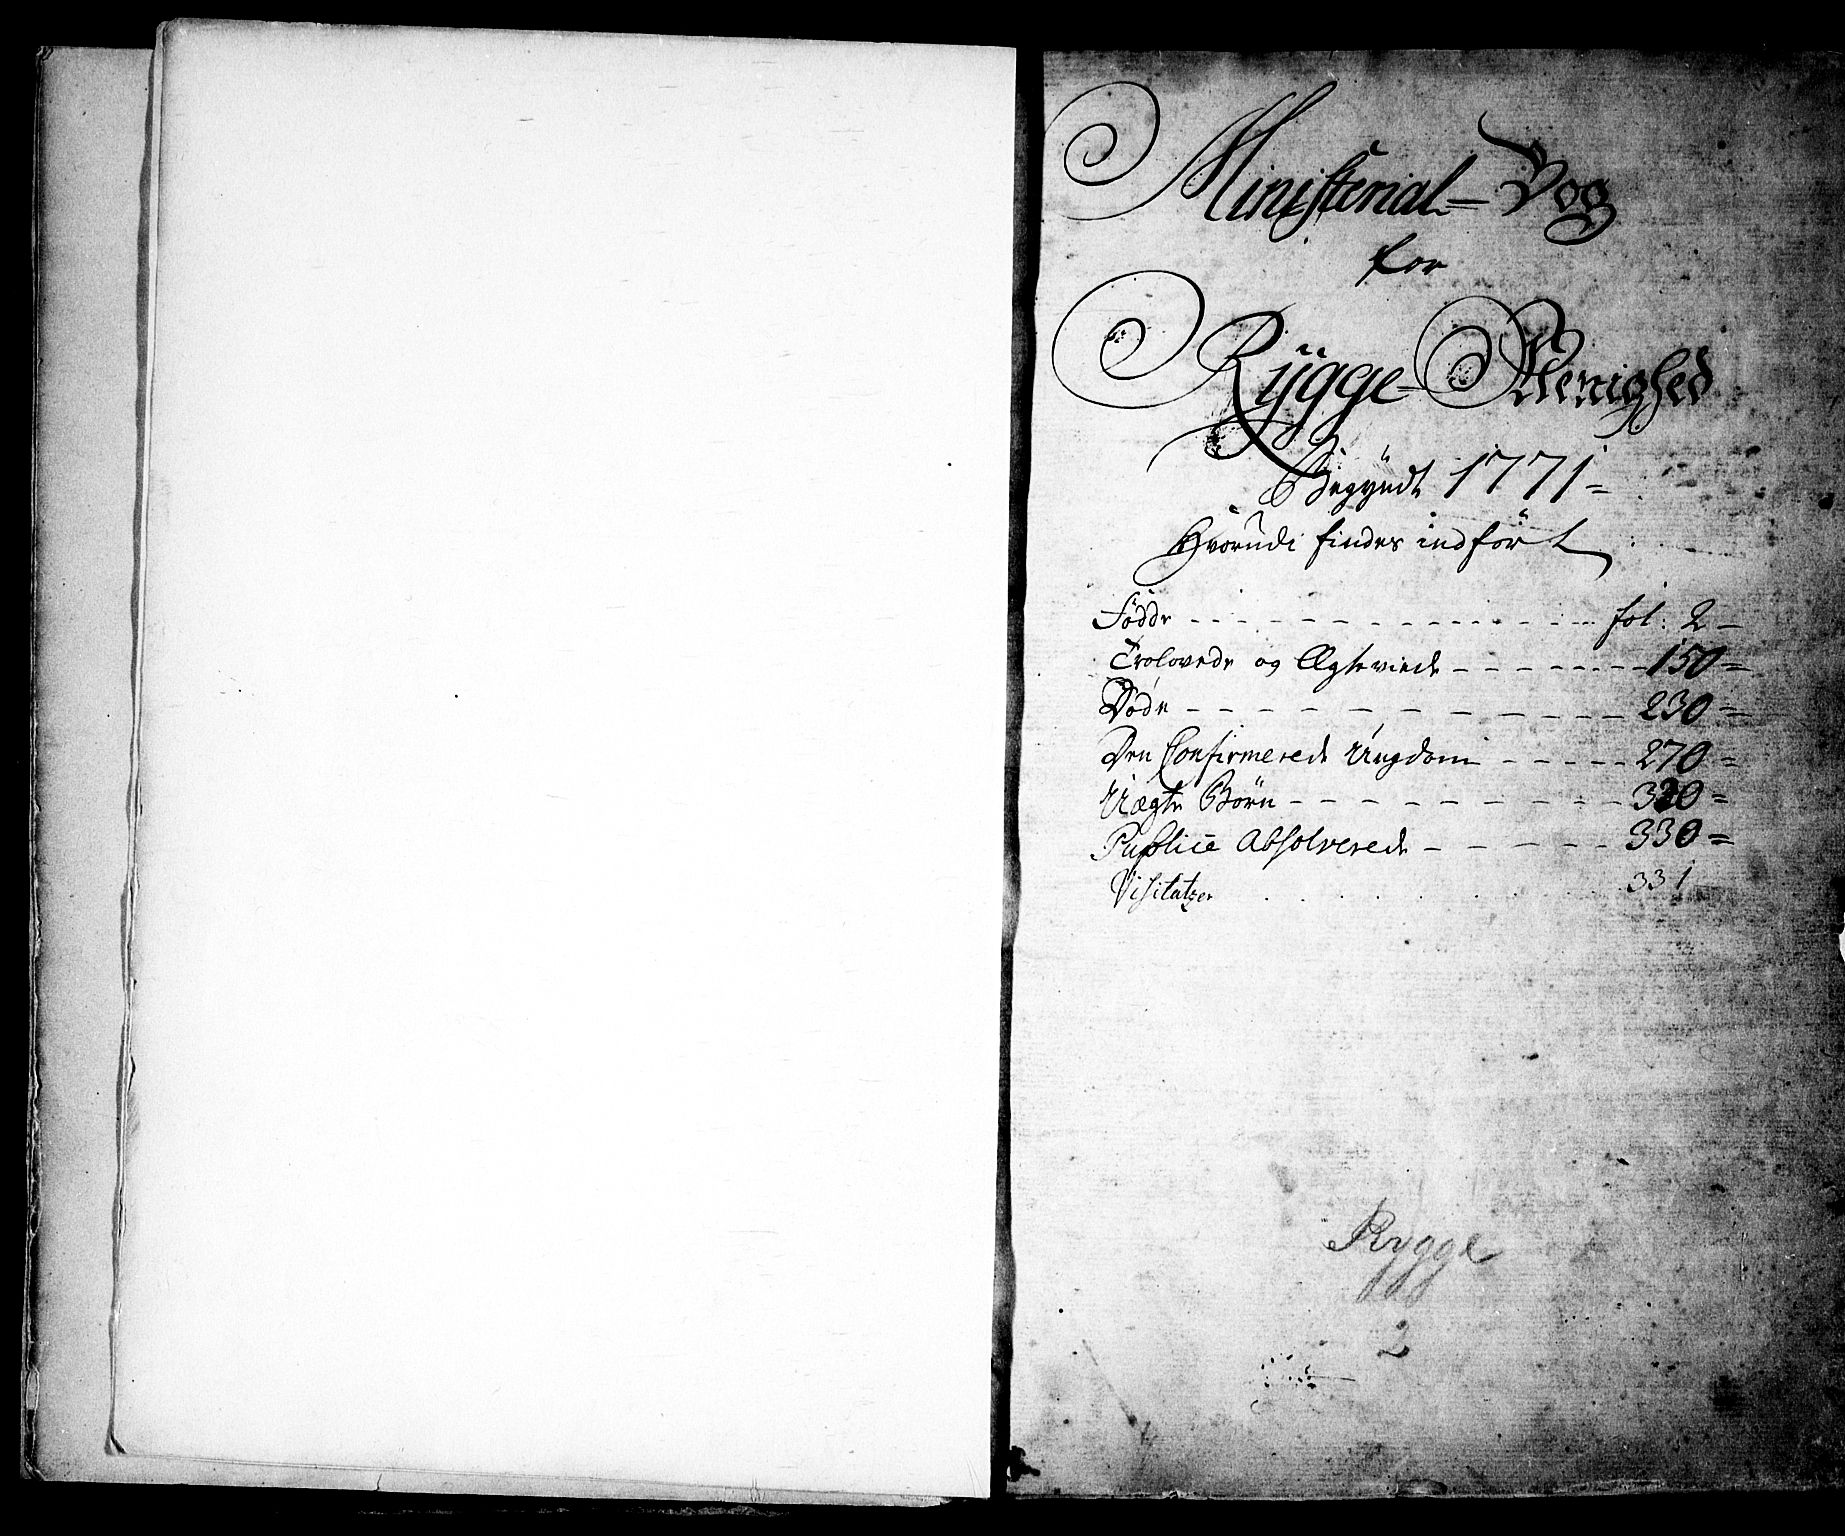 Ministerial-Bog
for
Rÿgge-Menighed
Begyndt 1771
Hvorudi findes indført
Fødde fol: 2
Trolovede og Ægteviede 150
Døde 230
Den Confirmerede Ungdom 270
Uægte Børn 320
Publice Absolverede 330
Visitatzer 331
Rygge
2